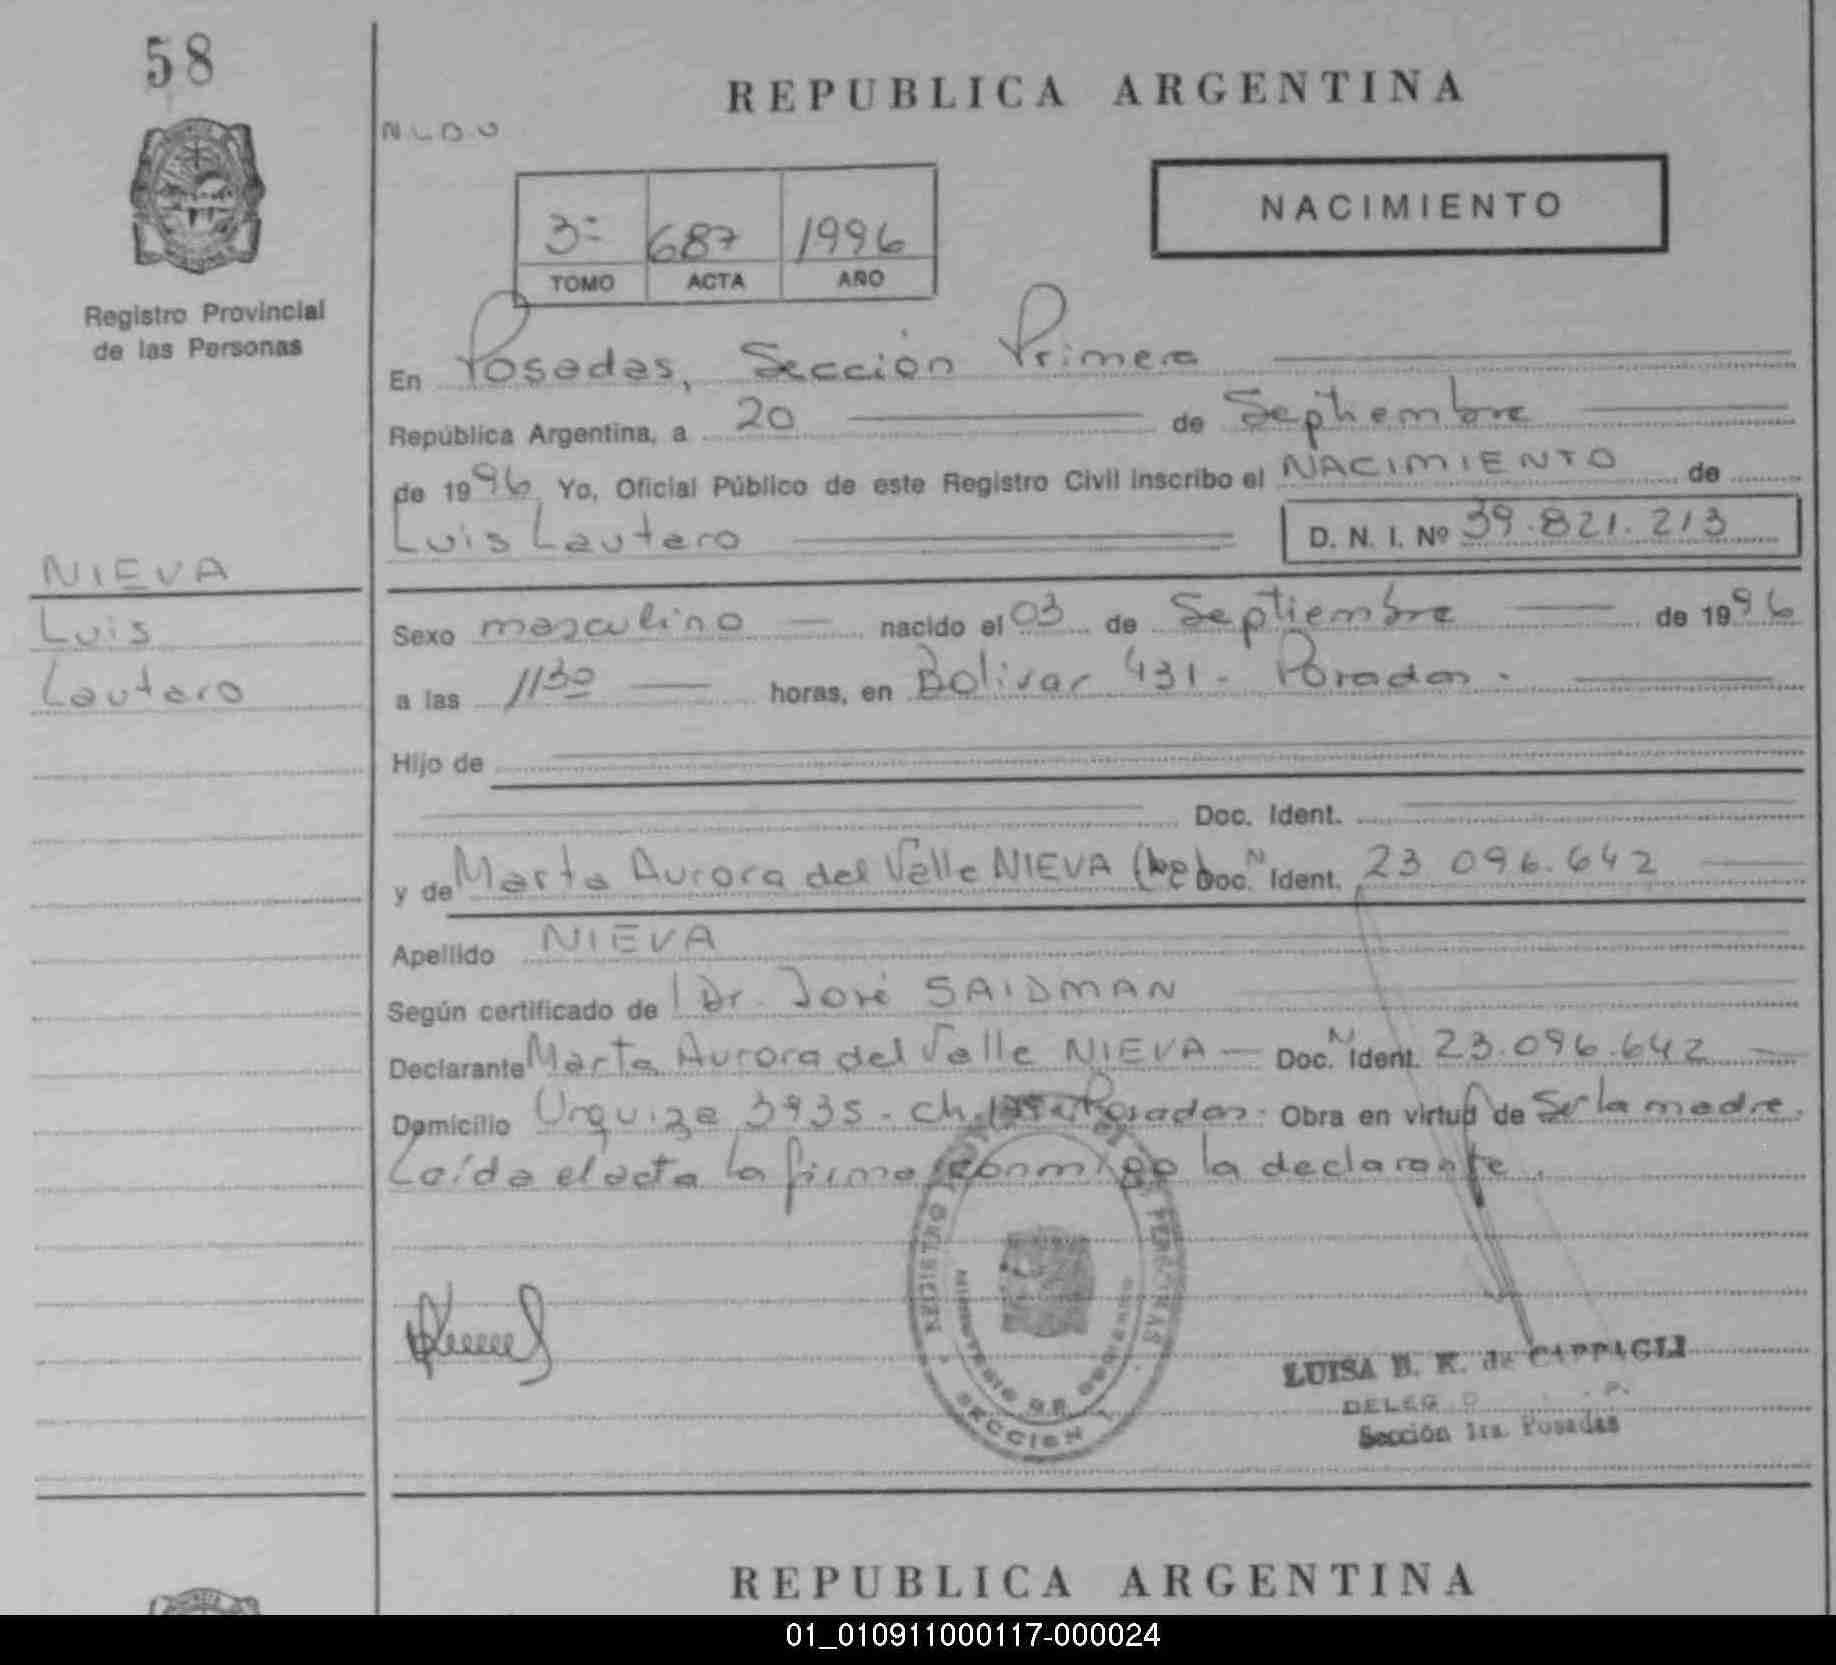 58
REPUBLICA ARGENTINA
N L D O
NACIMIENTO
3º 687 1996
TOMO ACTA AÑO
Registro Provincial
de las Personas
En Posadas, Sección Primera
República Argentina, a 20 de Septiembre
de 1996 Yo, Oficial Público de este Registro Civil inscribo el NACIMIENTO de
Luis Lautaro D. N. I. Nº 39.821.213
NIEVA
Luis
Lautaro
Sexo masculino nacido el 03 de Septiembre de 1996
a las 1130 horas, en Bolivar 431 - Posadas.
Hijo de
Doc. Ident.
y de Marta Aurora del Valle NIEVA Doc. N Ident. 23 096.642
Apellido NIEVA
Según certificado de Dr. José SAIDMAN
Declarante Marta Aurora del Valle NIEVA — Doc. N Ident. 23.096.642
Domicilio Urquiza 3935 - Ch. Posadas. Obra en virtud de Ser la madre.
Laída el acta la firma conmigo la declarante.
REGISTRO PERSONAS
MINISTERIO DE GOBIERNO
SECCION 1
LUISA B. K. de CAPPAGLI
DELEG
Sección 1ra. Posadas
REPUBLICA ARGENTINA
01_010911000117-000024